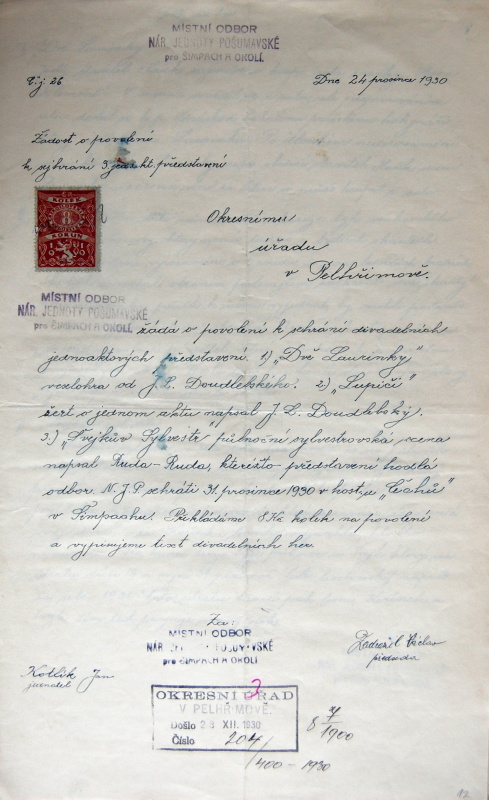 MÍSTNÍ ODBOR
NÁR. JEDNOTY POŠUMAVSKÉ
pro ŠIMPACH A OKOLÍ.
Č.j. 26
Dne 24 prosince 1930
Žádost o povolení
k sehrání 3. jedakt. představení
KOLEK
8
KORUN
Okresnímu
úřadu
v Pelhřimově.
MÍSTNÍ ODBOR
NÁR. JEDNOTY POŠUMAVSKÉ
pro ŠIMPACH A OKOLÍ. žádá o povolení k sehrání divadelních
jednoaktových představení. 1) „Dvě Laurinky"
veselohra od J. L. Doudlebského. 2.) „Lupiči"
žert o jednom aktu napsal J. L. Doudlebský.
3.) „Švejkův Sylvestr půlnoční sylvestrovská scena
napsal Ruda-Ruda, kteréžto představení hodlá
odbor. N.J.P. sehráti 31. prosince 1930 v host. „Čechů"
v Šimpachu. Přikládáme 8 Kč kolek na povolení
a vypisujeme text divadelních her.
Za:
MÍSTNÍ ODBOR
NÁR. JEDNOTY POŠUMAVSKÉ
pro ŠIMPACH A OKOLÍ
Václav
předseda
Kotlík Jan
jednatel
OKRESNÍ ÚŘAD
V PELHŘIMOVĚ.
Došlo 28 XII. 1930
Číslo 204
/400 - 1930
8 7/1900
12